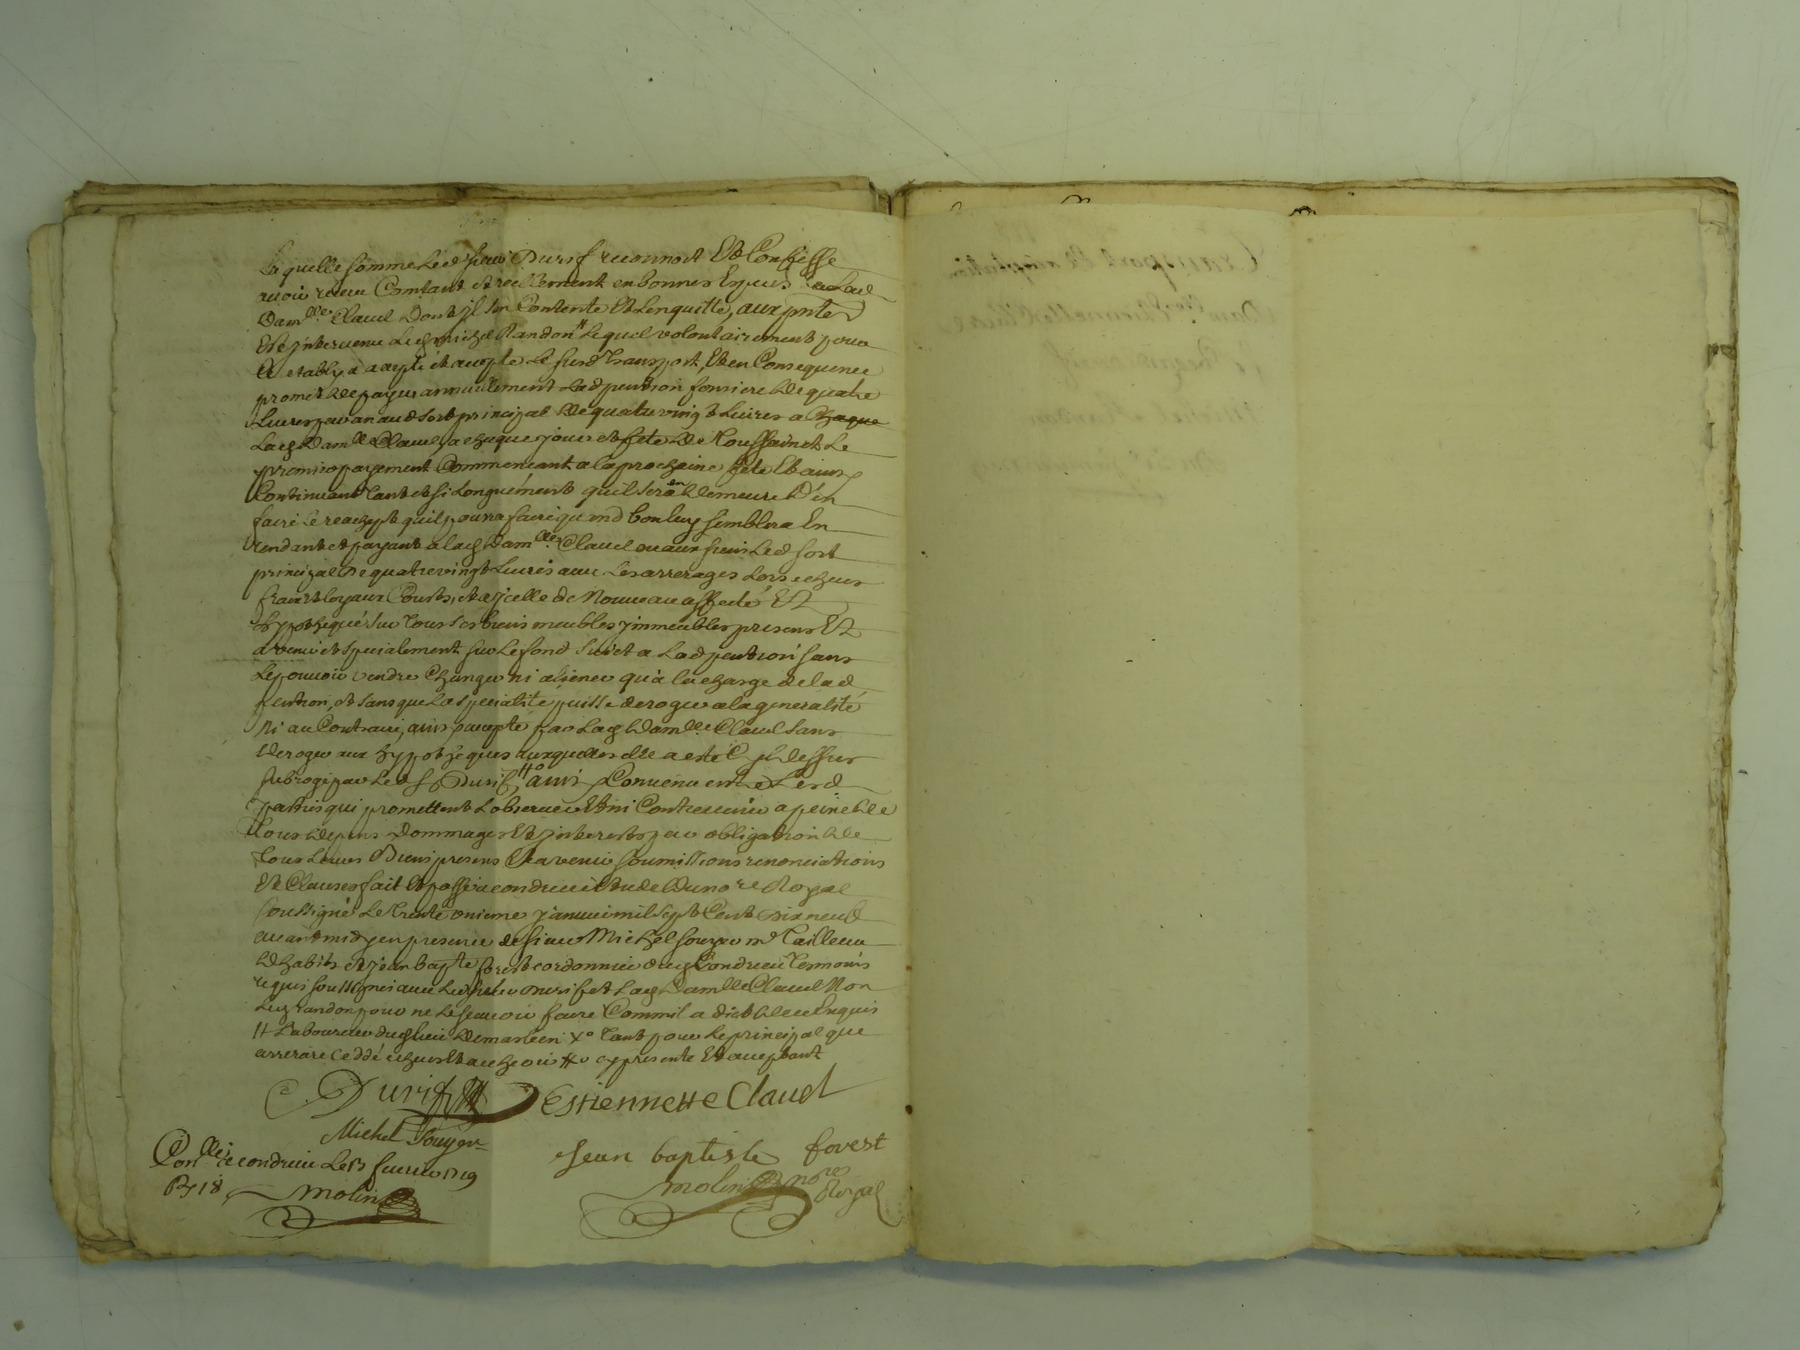 Laquelle somme Led sieur Durif reconnoit Et Confesse
avoir receu Comtant et reellement en bonnes Especes de Lad
Damlle Claud Dont jl s'en Contente Et Lenquitte, aux pntes
Est jntervenu Led michel Randon # Lequel volontairement pour
Ce etably a accepté et accepte Le susd transport, Et en Consequence
promet de payer annuelement Lad pention fonsiere de quatre
Livres par an aud sort principal de quatre vingt Livres a chaque
Lad Damlle Claud, a chaque jour et fete de Toussainct Le
premier payement Commencant a la prochaine fete Et ainsy
Continuant tant et si Longuement quil sera en demeure D'en
faire Le reachept quil poura faire quand bon luy semblera En
rendant et payant a lad Damlle Claud ou aux siens Led sort
principal de quatre vingt Livres avec Les arrerages Lors echeus
frais et loyaux Cousts, et a jcelle de Nouveau affecté Et
hypothequé sur tous ses biens meubles jmmeubles presens Et
avenir et specialement sur Le fond sujet a Lad pention sans
Le pouvoir vendre Changer ni aliener qu'à la charge de lad
pention, et sans que La specialité puisse deroger a la generalité
Ni au Contraire, ainsy accepté par Lad Damlle Claud sans
deroger aux hypotheques auxquelles elle a esté Cy dessus
subrogé par Led sr Durif, #o ainsi Convenu entre Lesd
parties qui promettent Lobserver Et ni Contrevenir a peine de
tous depens Dommages Et jnterests par obligation de
tous Leurs Biens presens Et avenir soumissions renonciations
Et Clauses fait Et passé a condrieu etude du nore Royal
soussigné Le trente onieme janvier mil sept Cent dix neuf
avant midy en presence de sieur Michel souyer md tailleur
dhabits et jean bapte forest cordonnier dud Condrieu temoins
requis soussignés avec Led sieur Durif et Lad Damlle Claud Non
Led randon pour ne Le scavoir faire Comm'il a dict de ce Enquis
# Laboureur dud lieu
arrerare ceddé echeus Et a echeoir #o cy presente Et acceptant
C. Durif
Estiennette Claud
Michel Souyer
Jean baptiste forest
Conllé a condrieu Le 13 fevrier 1719
R 18 s
molin
molin nore Royal